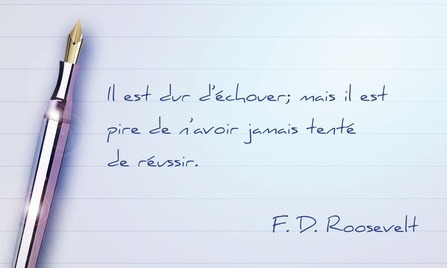 Il est dur d'échouer; mais il est
pire de n'avoir jamais tenté
de réussir.
F. D. Roosevelt